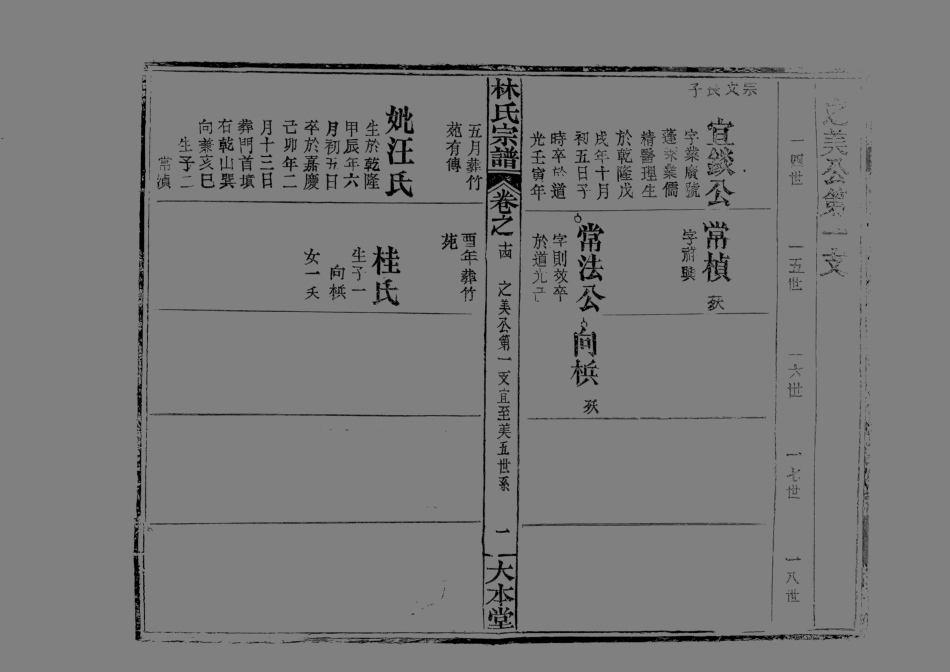 之美公第一支
一四世
一五世
一六世
一七世
一八世
宗文長子
宣錟公
字業廣號
蓬萊業儒
精醫理生
於乾隆戊
戌年十月
初五日子
時卒於道
光壬寅年
常楨
殀
字蔚興
常法公
字則效卒
於道光
向梹
殀
林氏宗譜
卷之
十四
之美公第一支宣至美五世系
一
大本堂
五月葬竹
苑有傳
妣汪氏
生於乾隆
甲辰年六
月初五日
卒於嘉慶
己卯年二
月十三日
葬門首塤
右乾山巽
向兼亥巳
生子二
常滇
酉年葬竹
苑
桂氏
生子一
向梹
女一夭